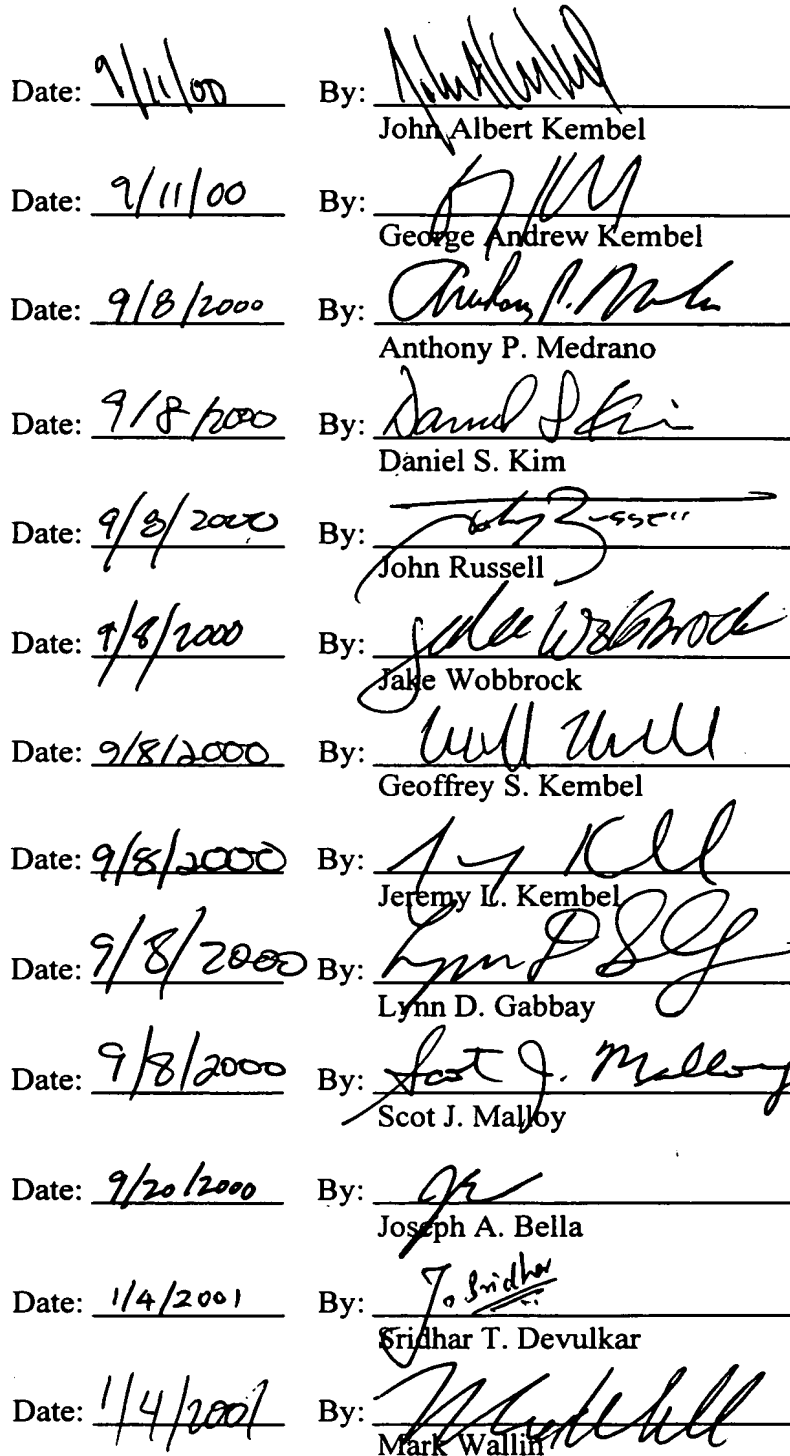 Date: 9/11/00 By:
John Albert Kembel
Date: 9/11/00 By:
George Andrew Kembel
Date: 9/8/2000 By: Anthony P.
Anthony P. Medrano
Date: 9/8/2000 By: Daniel S Kim
Daniel S. Kim
Date: 9/8/2000 By: Russell
John Russell
Date: 9/8/2000 By: Jake Wobbrock
Jake Wobbrock
Date: 9/8/2000 By:
Geoffrey S. Kembel
Date: 9/8/2000 By:
Jeremy L. Kembel
Date: 9/8/2000 By: Lynn D
Lynn D. Gabbay
Date: 9/8/2000 By: Scot J. Malloy
Scot J. Malloy
Date: 9/20/2000 By:
Joseph A. Bella
Date: 1/4/2001 By: T. Sridhar
Sridhar T. Devulkar
Date: 1/4/2001 By:
Mark Wallin